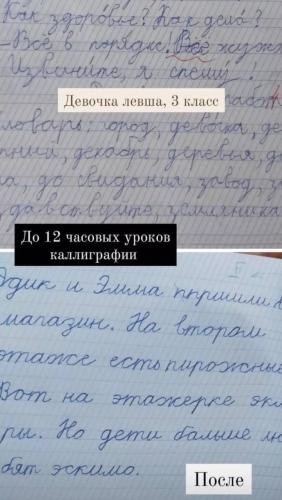 Как здоровье? Как дела?
- Всё в порядке. Все
Извините, я спешу.
Девочка левша, 3 класс
работ
ловарь: город, девочка, де
декабрь, деревья, до
до свидания, завод, за
здравствуйте, земляника
До 12 часовых уроков
каллиграфии
Эдик и Эмма
магазин. На втором
этаже есть пирожные
Вот на этажерке эк
ры. Но дети больше лю
бят эскимо.
После